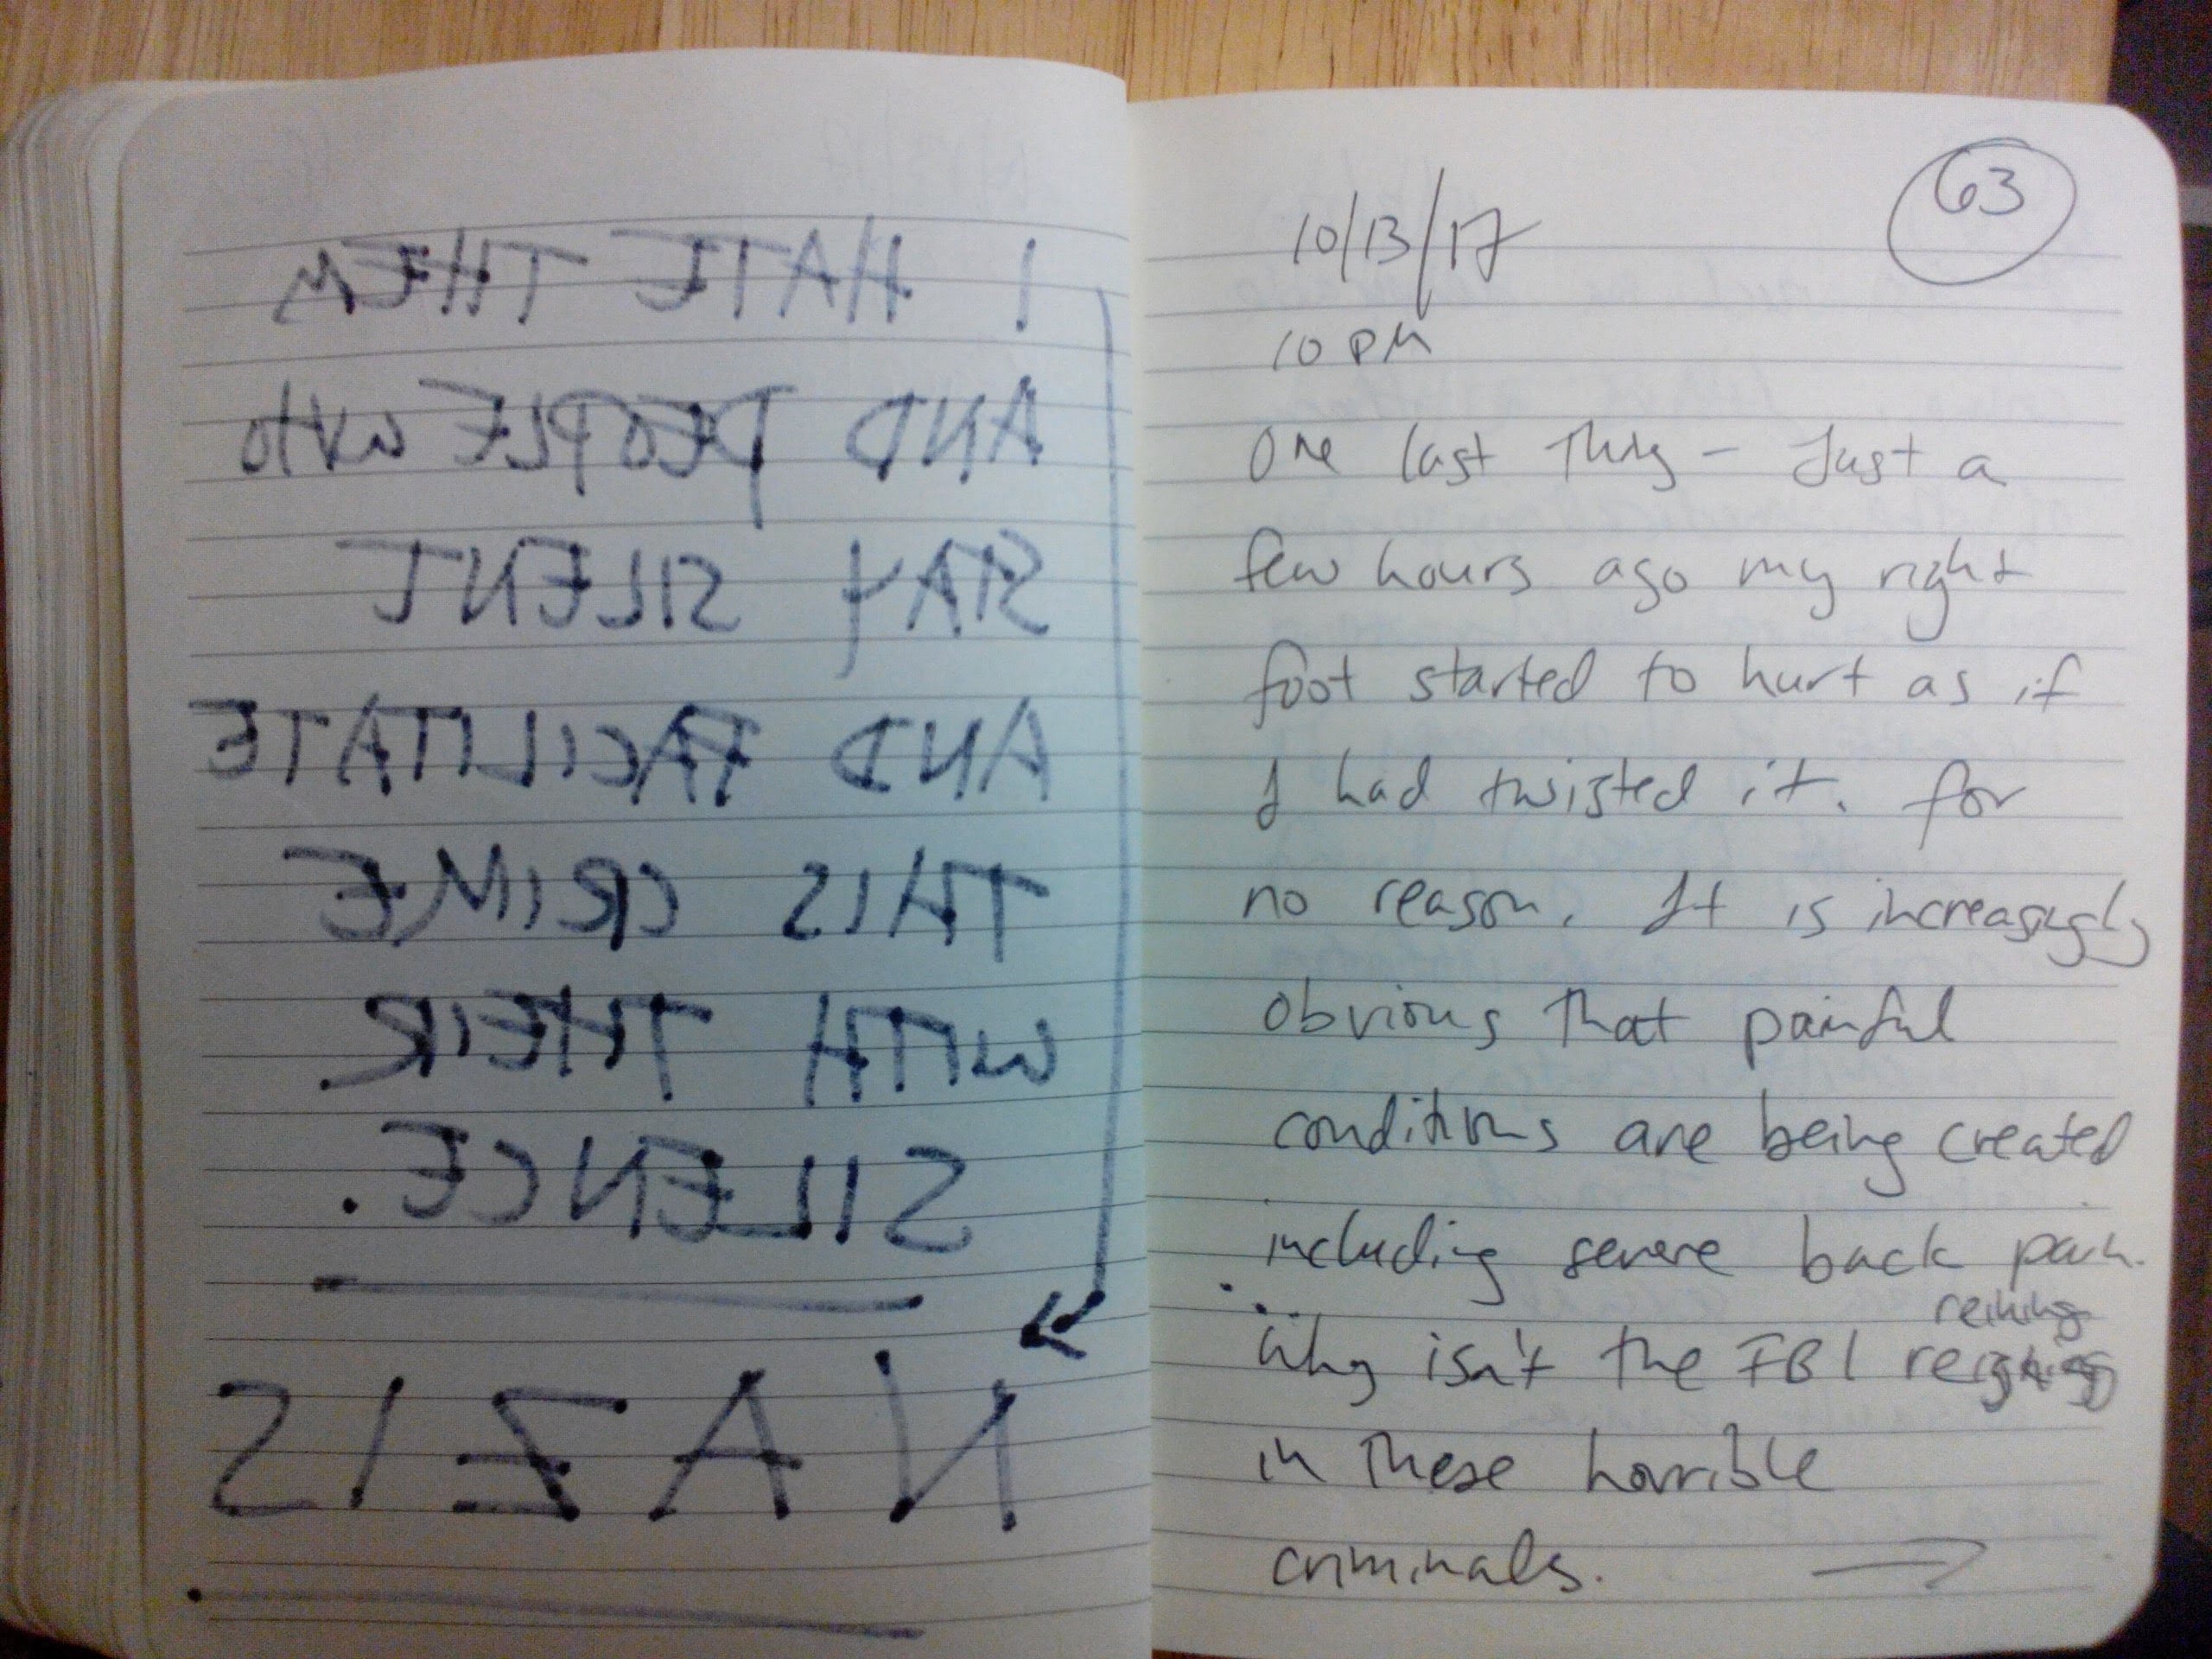 I HATE THEM
AND PEOPLE WHO
STAY SILENT
AND FACILITATE
THIS CRIME
WITH THEIR
SILENCE.
NAZIS
63
10/13/17
10 PM
One last thing – Just a
few hours ago my right
foot started to hurt as if
I had twisted it. for
no reason. It is increasingly
obvious that painful
conditions are being created
including severe back pain.
reining
Why isn't the FBI
in these horrible
criminals. →